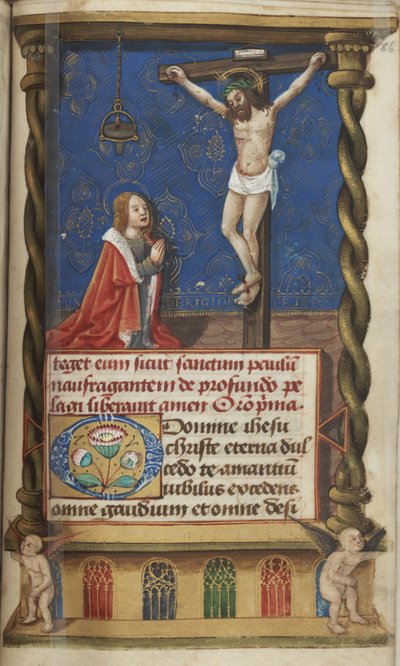 teget eum sicut sanctum paulum
naufragantem de profundo pe
lagi liberauit amen Oro pma.
O Domine ihesu
christe eterna dul
cedo te amantiū
iubilus excedens
omne gaudium et omne desi